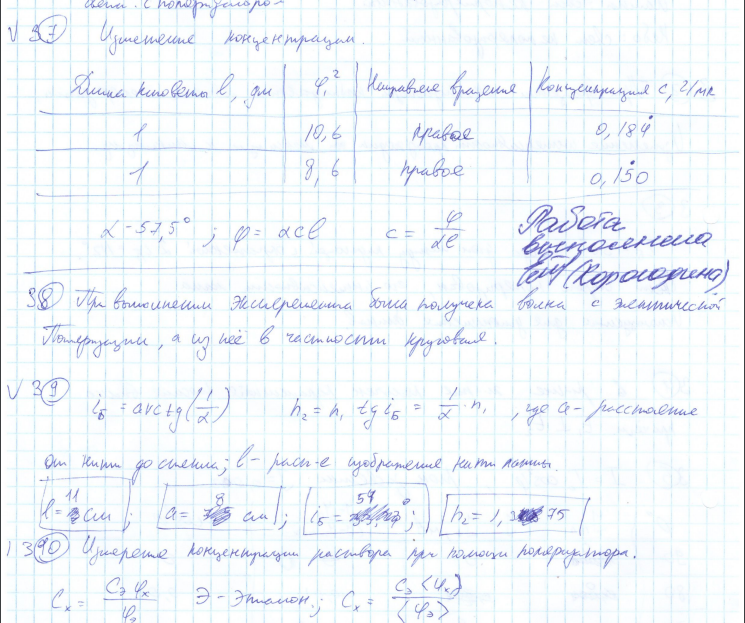 V 37 Измерение концентрации.
Длина кюветы l, дм | φ,° | Направление вращения | Концентрация c, г/мл
1 | 10,6 | правое | 0,184
1 | 8,6 | правое | 0,150
α = 57,5° ; φ = αcl c = φ/αl
Работа
выполнена
(Корогодина)
38 При выполнении эксперемента была получена волна с элептической
Поляризации, а из неё в частности круговая.
V 39 iБ = arctg(l/a) n₂ = n₁ tg iБ = l/a · n₁ , где a - расстояние
от нити до стекла; l - расст-е изображения нити лампы.
l = 11 см ; a = 8 см ; iБ = 54° ; n₂ = 1,375
310 Измерение концентрации раствора при помощи поляризатора.
Cx = Cэ φx / φэ Э - Эталон.; Cx = Cэ ⟨φx⟩ / ⟨φэ⟩